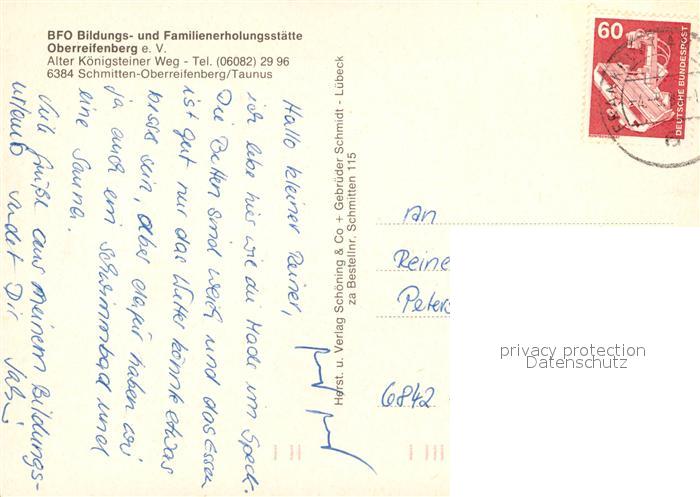 BFO Bildungs- und Familienerholungsstätte
Oberreifenberg e. V.
Alter Königsteiner Weg - Tel. (06082) 29 96
6384 Schmitten-Oberreifenberg/Taunus
Hallo kleiner Reiner,
ich lebe hier wie die Made im Speck.
Die Betten sind weich und das Essen
ist gut nur das Wetter könnte etwas
besser sein, aber dafür haben wir
ja auch ein Schwimmbad und
eine Sauna.
Viele Grüße aus meinem Bildungs-
urlaub sendet Dir
Herst. u. Verlag Schöning & Co + Gebrüder Schmidt - Lübeck
za Bestellnr. Schmitten 115
60
DEUTSCHE BUNDESPOST
An
Reine
Peters
6842
privacy protection
Datenschutz